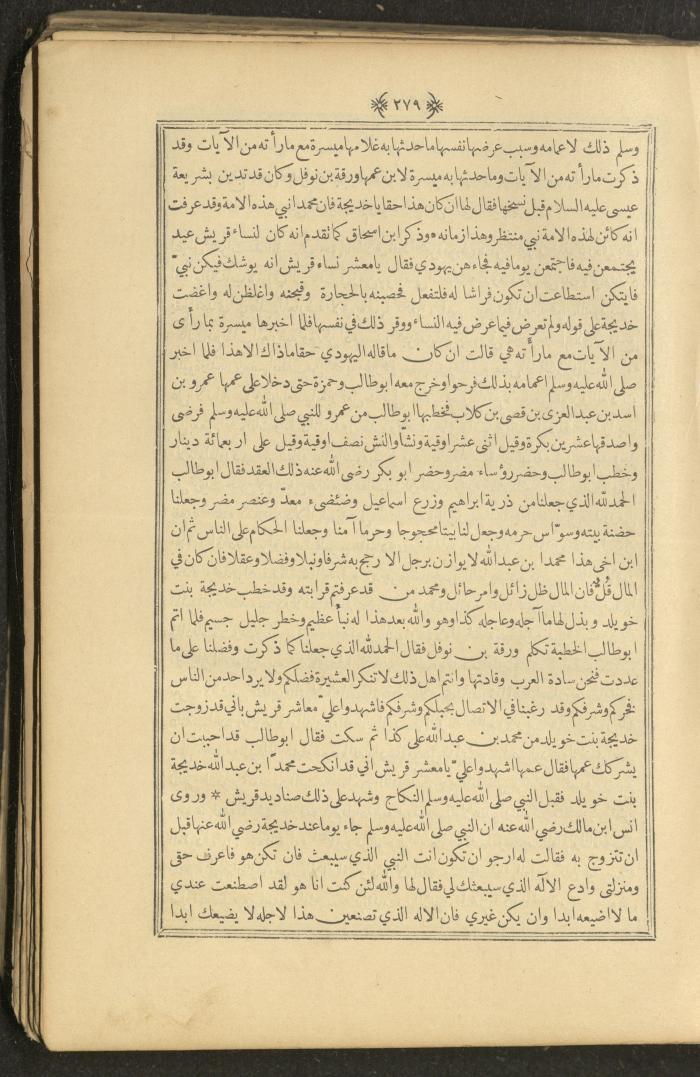 ٢٧٩
وسلم ذلك لاعمامه وسبب عرضها نفسها ما حدثها به غلامها ميسرة مع ما رأته من الآيات وقد
ذكرت ما رأته من الآيات وما حدثها به ميسرة لابن عمها ورقة بن نوفل وكان قد تدين بشريعة
عيسى عليه السلام قبل نسخها فقال لها ان كان هذا حقا يا خديجة فان محمدا نبي هذه الامة وقد عرفت
انه كائن لهذه الامة نبي منتظر وهذا زمانه * وذكر ابن اسحاق كما تقدم انه كان لنساء قريش عيد
يجتمعن فيه فاجتمعن يوما فيه فجاءهن يهودي فقال يا معشر نساء قريش انه يوشك فيكن نبيّ
فايتكن استطاعت ان تكون فراشا له فلتفعل فحصبنه بالحجارة وقبحنه واغلظن له واغضت
خديجة على قوله ولم تعرض فيما عرض فيه النساء ووقر ذلك في نفسها فلما اخبرها ميسرة بما رأى
من الآيات مع ما رأته هي قالت ان كان ما قاله اليهودي حقا ما ذاك الا هذا فلما اخبر
صلى الله عليه وسلم اعمامه بذلك فرحوا وخرج معه ابو طالب وحمزة حتى دخلا على عمها عمرو بن
اسد بن عبد العزى بن قصى بن كلاب فخطبها ابو طالب من عمرو للنبي صلى الله عليه وسلم فرضى
واصدقها عشرين بكرة وقيل اثنى عشر اوقية ونشّا والنش نصف اوقية وقيل على اربعمائة دينار
وخطب ابو طالب وحضر رؤساء مضر وحضر ابو بكر رضى الله عنه ذلك العقد فقال ابو طالب
الحمد لله الذي جعلنا من ذرية ابراهيم وزرع اسماعيل وضئضىء معدّ وعنصر مضر وجعلنا
حضنة بيته وسوّاس حرمه وجعل لنا بيتا محجوجا وحرما آمنا وجعلنا الحكام على الناس ثم ان
ابن اخي هذا محمدا بن عبد الله لا يوازن برجل الا رجح به شرفا ونبلا وفضلا وعقلا فان كان في
المال قُلّ فان المال ظل زائل وامر حائل ومحمد من قد عرفتم قرابته وقد خطب خديجة بنت
خويلد وبذل لها ما آجله وعاجله كذا وهو والله بعد هذا له نبأ عظيم وخطر جليل جسيم فلما اتم
ابو طالب الخطبة تكلم ورقة بن نوفل فقال الحمد لله الذي جعلنا كما ذكرت وفضلنا على ما
عددت فنحن سادة العرب وقادتها وانتم اهل ذلك لا تنكر العشيرة فضلكم ولا يرد احد من الناس
فخركم وشرفكم وقد رغبنا في الاتصال بحبلكم وشرفكم فاشهدوا عليّ معاشر قريش باني قد زوجت
خديجة بنت خويلد من محمد بن عبد الله على كذا ثم سكت فقال ابو طالب قد احببت ان
يشركك عمها فقال عمها اشهدوا عليّ يا معشر قريش اني قد انكحت محمدًا بن عبد الله خديجة
بنت خويلد فقبل النبي صلى الله عليه وسلم النكاح وشهد على ذلك صناديد قريش * وروى
انس ابن مالك رضي الله عنه ان النبي صلى الله عليه وسلم جاء يوما عند خديجة رضي الله عنها قبل
ان تتزوج به فقالت له ارجو ان تكون انت النبي الذي سيبعث فان تكن هو فاعرف حقى
ومنزلتى وادع الآله الذي سيبعثك لي فقال لها والله لئن كنت انا هو لقد اصطنعت عندي
ما لا اضيعه ابدا وان يكن غيري فان الاله الذي تصنعين هذا لاجله لا يضيعك ابدا